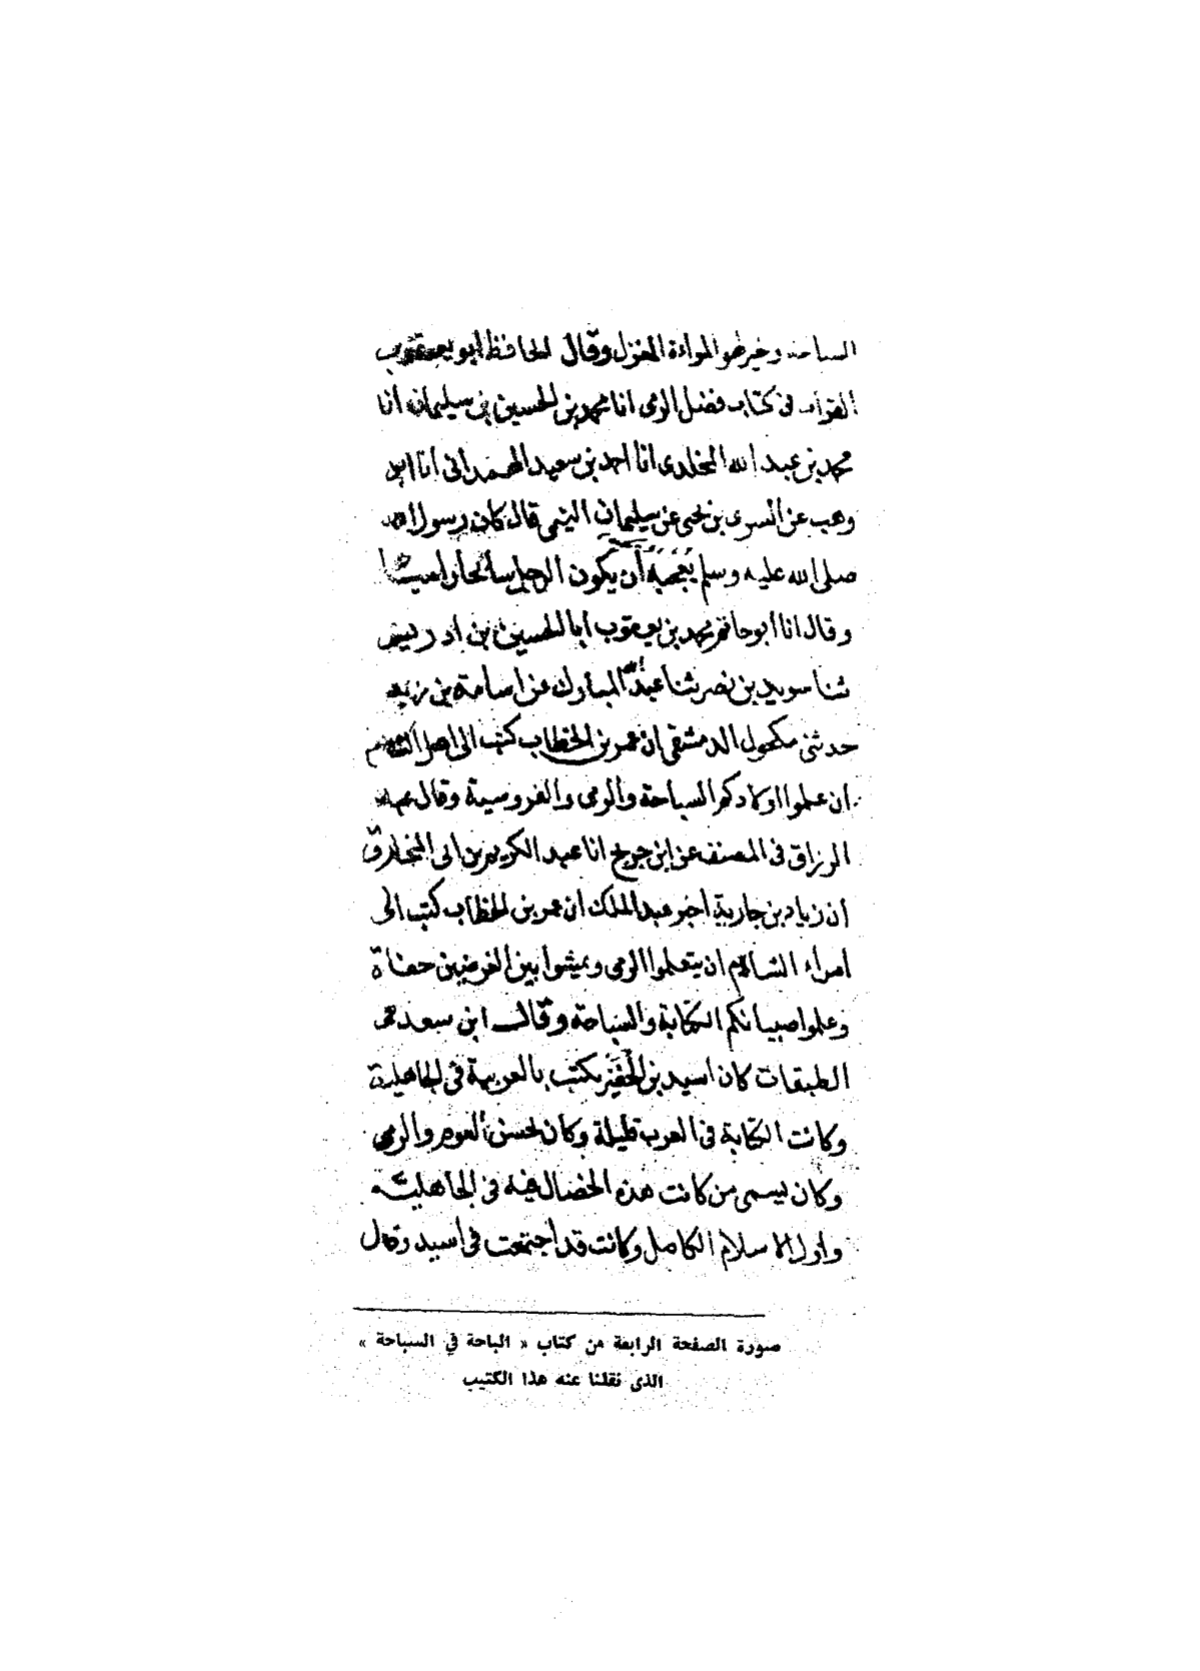 السباحة وخير لهو المراءة المغزل وقال الحافظ ابو يعقوب
القراب في كتاب فضل الرمي انا محمد بن الحسين بن سليمان انا
محمد بن عبد الله المخلدى انا احمد بن سعيد الهمدانى انا ابن
وهب عن السرى بن يحيى عن سليمان التيمى قال كان رسول الله
صلى الله عليه وسلم يُعْجِبُهُ أن يكون الرجل سابحا راميا
وقال انا ابو حاتم محمد بن يعقوب ابا الحسين بن ادريس
ثنا سويد بن نصر ثنا عبد الله المبارك عن اسامة بن زيد
حدثنى مكحول الدمشقى ان عمر بن الخطاب كتب الى اهل الشام
ان علموا اولادكم السباحة والرمى والفروسية وقال عبد
الرزاق فى المصنف عن ابن جريج انا عبد الكريم بن ابى المخارق
ان زياد بن جارية اخبر عبد الملك ان عمر بن الخطاب كتب الى
امراء الشام ان يتعلموا الرمى ويمشوا بين الغرضين حفاة
وعلموا صبيانكم الكتابة والسباحة وقال ابن سعد فى
الطبقات كان اسيد بن الحضير يكتب بالعربية فى الجاهلية
وكانت الكتابة فى العرب قليلة وكان يحسن العوم والرمى
وكان يسمى من كانت هذه الخصال فيه فى الجاهلية
واول الاسلام الكامل وكانت قد اجتمعت فى اسيد وقال
صورة الصفحة الرابعة من كتاب « الباحة في السباحة »
الذى نقلنا عنه هذا الكتيب